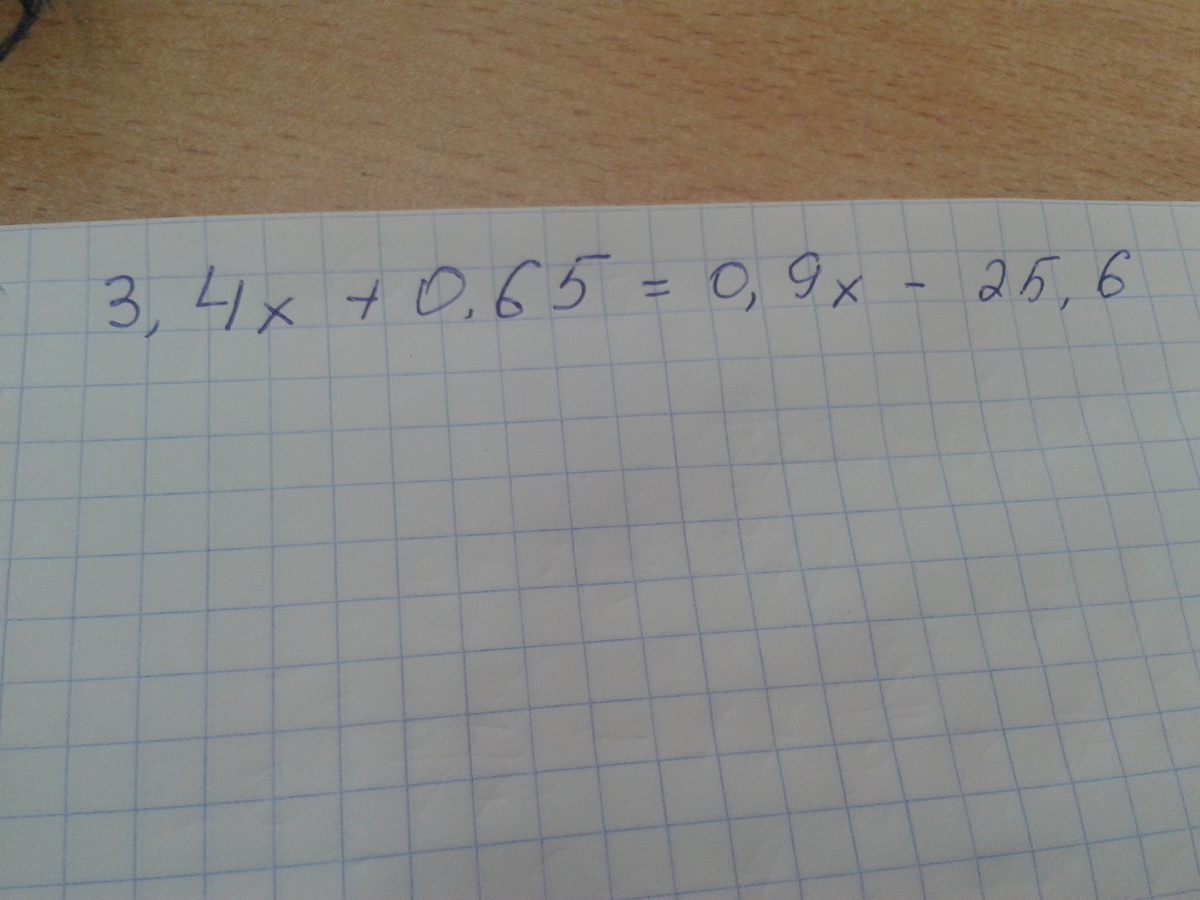 3,4x + 0,65 = 0,9x - 25,6